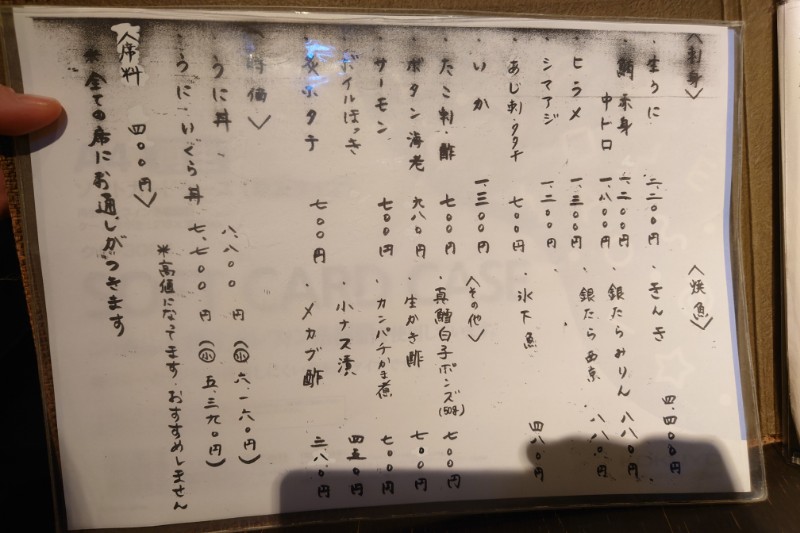 〈刺身〉
・生うに 二、二〇〇円
・鮪 赤身 一、二〇〇円
中トロ 一、八〇〇円
・ヒラメ 一、三〇〇円
・シマアジ 一、二〇〇円
・あじ刺・タタキ 七〇〇円
・いか 一、三〇〇円
・たこ刺・酢 七〇〇円
・ボタン海老 六八〇円
・サーモン 七〇〇円
・ボイルほっき 七〇〇円
ホタテ 七〇〇円
〈焼魚〉
・きんき 四、四〇〇円
・銀たらみりん 八八〇円
・銀たら西京 八八〇円
・氷下魚 四八〇円
〈その他〉
・真鱈白子ポンズ(50g) 七〇〇円
・生かき酢 七〇〇円
・カンパチかま煮 七〇〇円
・小ナス漬 四五〇円
・メカブ酢 三八〇円
価〉
・うに丼 八、八〇〇円(小 六、一六〇円)
・うに・いくら丼 七、七〇〇円(小 五、三九〇円)
※高値になってます、おすすめしません
〈席料 四〇〇円〉
※全ての席にお通しがつきます